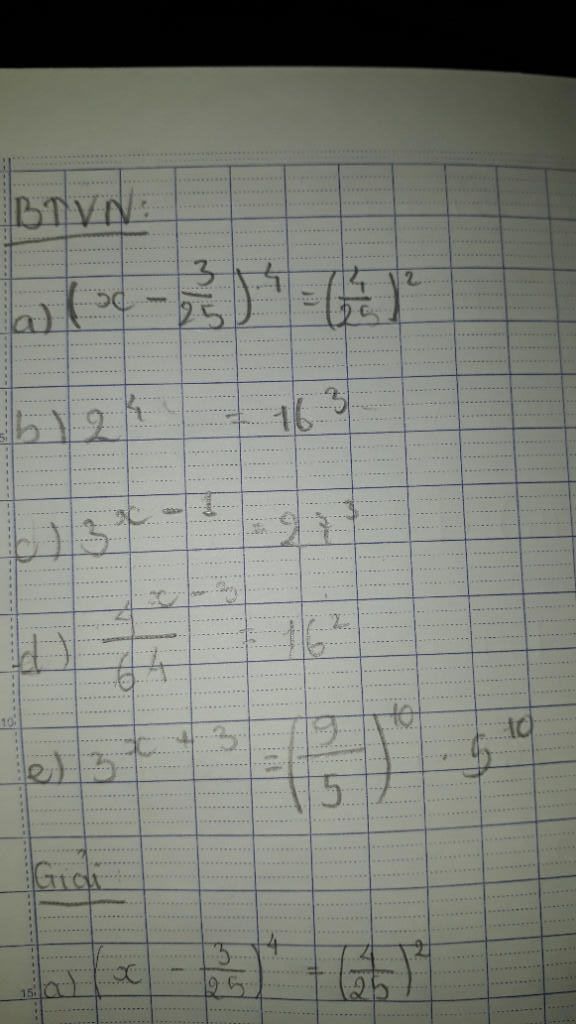 BTVN:
a) (x - 3/25)^4 = (4/25)^2
b) 2^4 = 16^3
c) 3^(x - 1) = 27^3
d) 4^(x - 3)/64 = 16^2
e) 3^(x + 3) = (9/5)^10 . 5^10
Giải
a) (x - 3/25)^4 = (4/25)^2
5
10
15